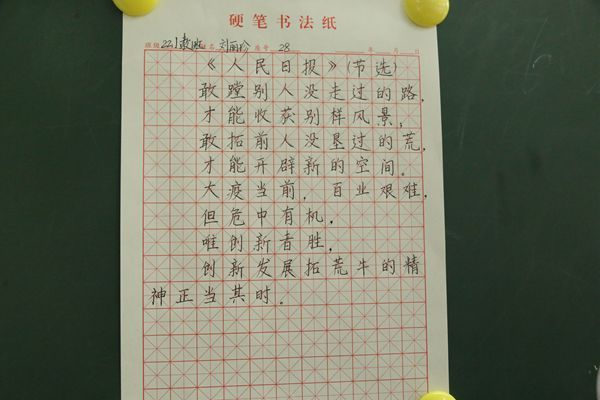 硬笔书法纸
班级 221 姓名 刘丽珍 座号 28 年 月 日
《人民日报》(节选)
敢蹚别人没走过的路,
才能收获别样风景,
敢拓前人没垦过的荒,
才能开辟新的空间.
大疫当前,百业艰难,
但危中有机,
唯创新者胜,
创新发展拓荒牛的精
神正当其时.